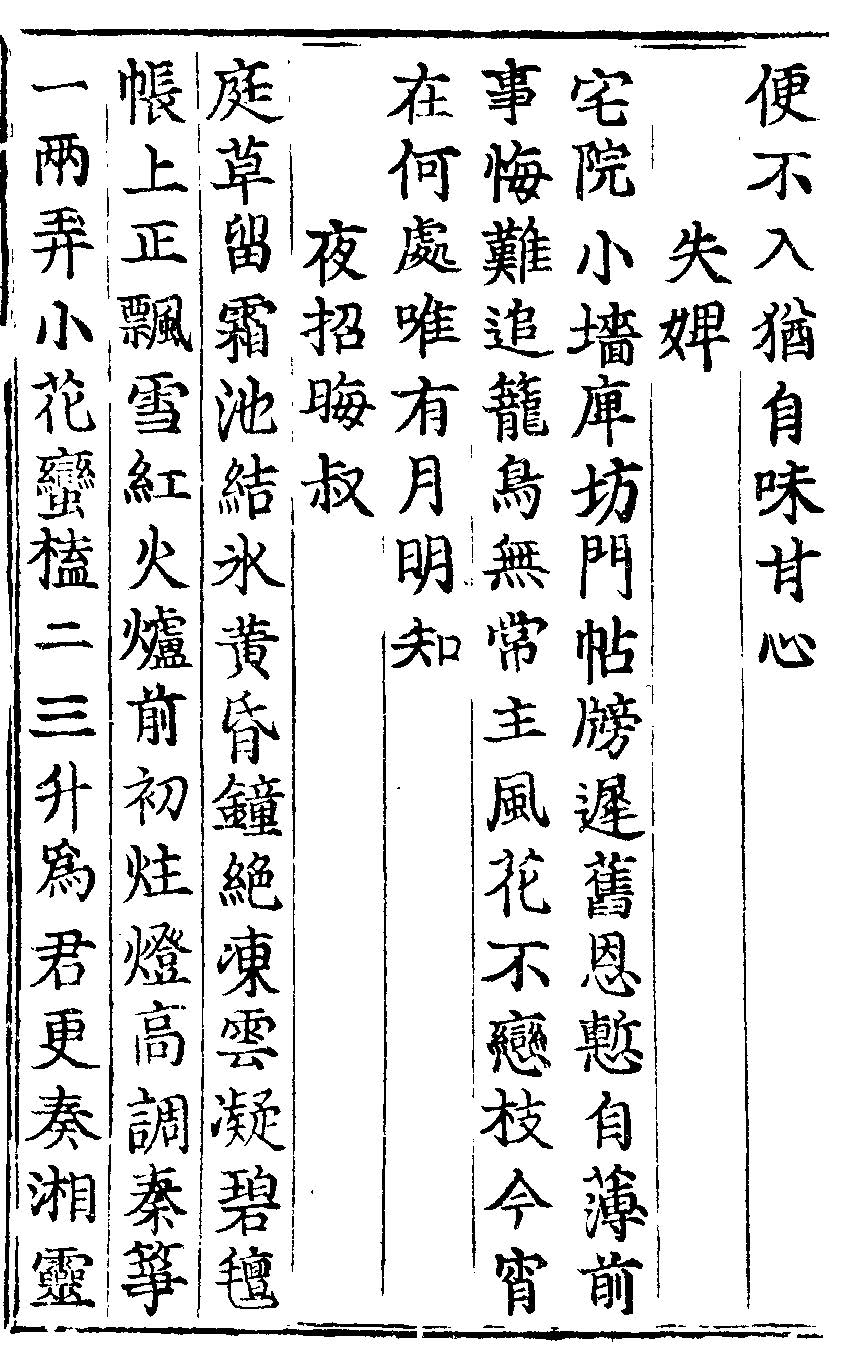 便不入猶自味甘心
失婢
宅院小墻庳坊門帖牓遲舊恩慙自薄前
事悔難追籠鳥無常主風花不戀枝今宵
在何處唯有月明知
夜招晦叔
庭草留霜池結氷黄昏鐘絶凍雲凝碧氊
帳上正飄雪紅火爐前初炷燈高調秦箏
一兩弄小花蠻榼二三升爲君更奏湘靈